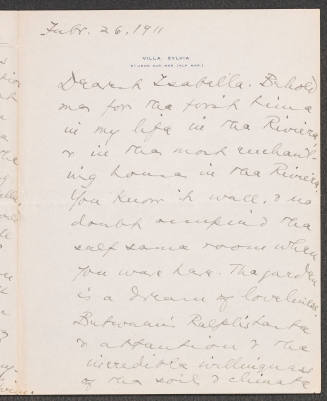 Febr. 26, 1911
VILLA SYLVIA
ST JEAN SUR MER (ALP. MAR.)
Dearest Isabella. Behold
me for the first time
in my life in the Riviera,
& in the most enchant-
ing house in the Riviera.
You know it well, & no
doubt occupied the
self same room when
you were here. The garden
is a dream of loveliness.
Between Ralph's taste
& attention & the
incredible willingness
of the soil & climate